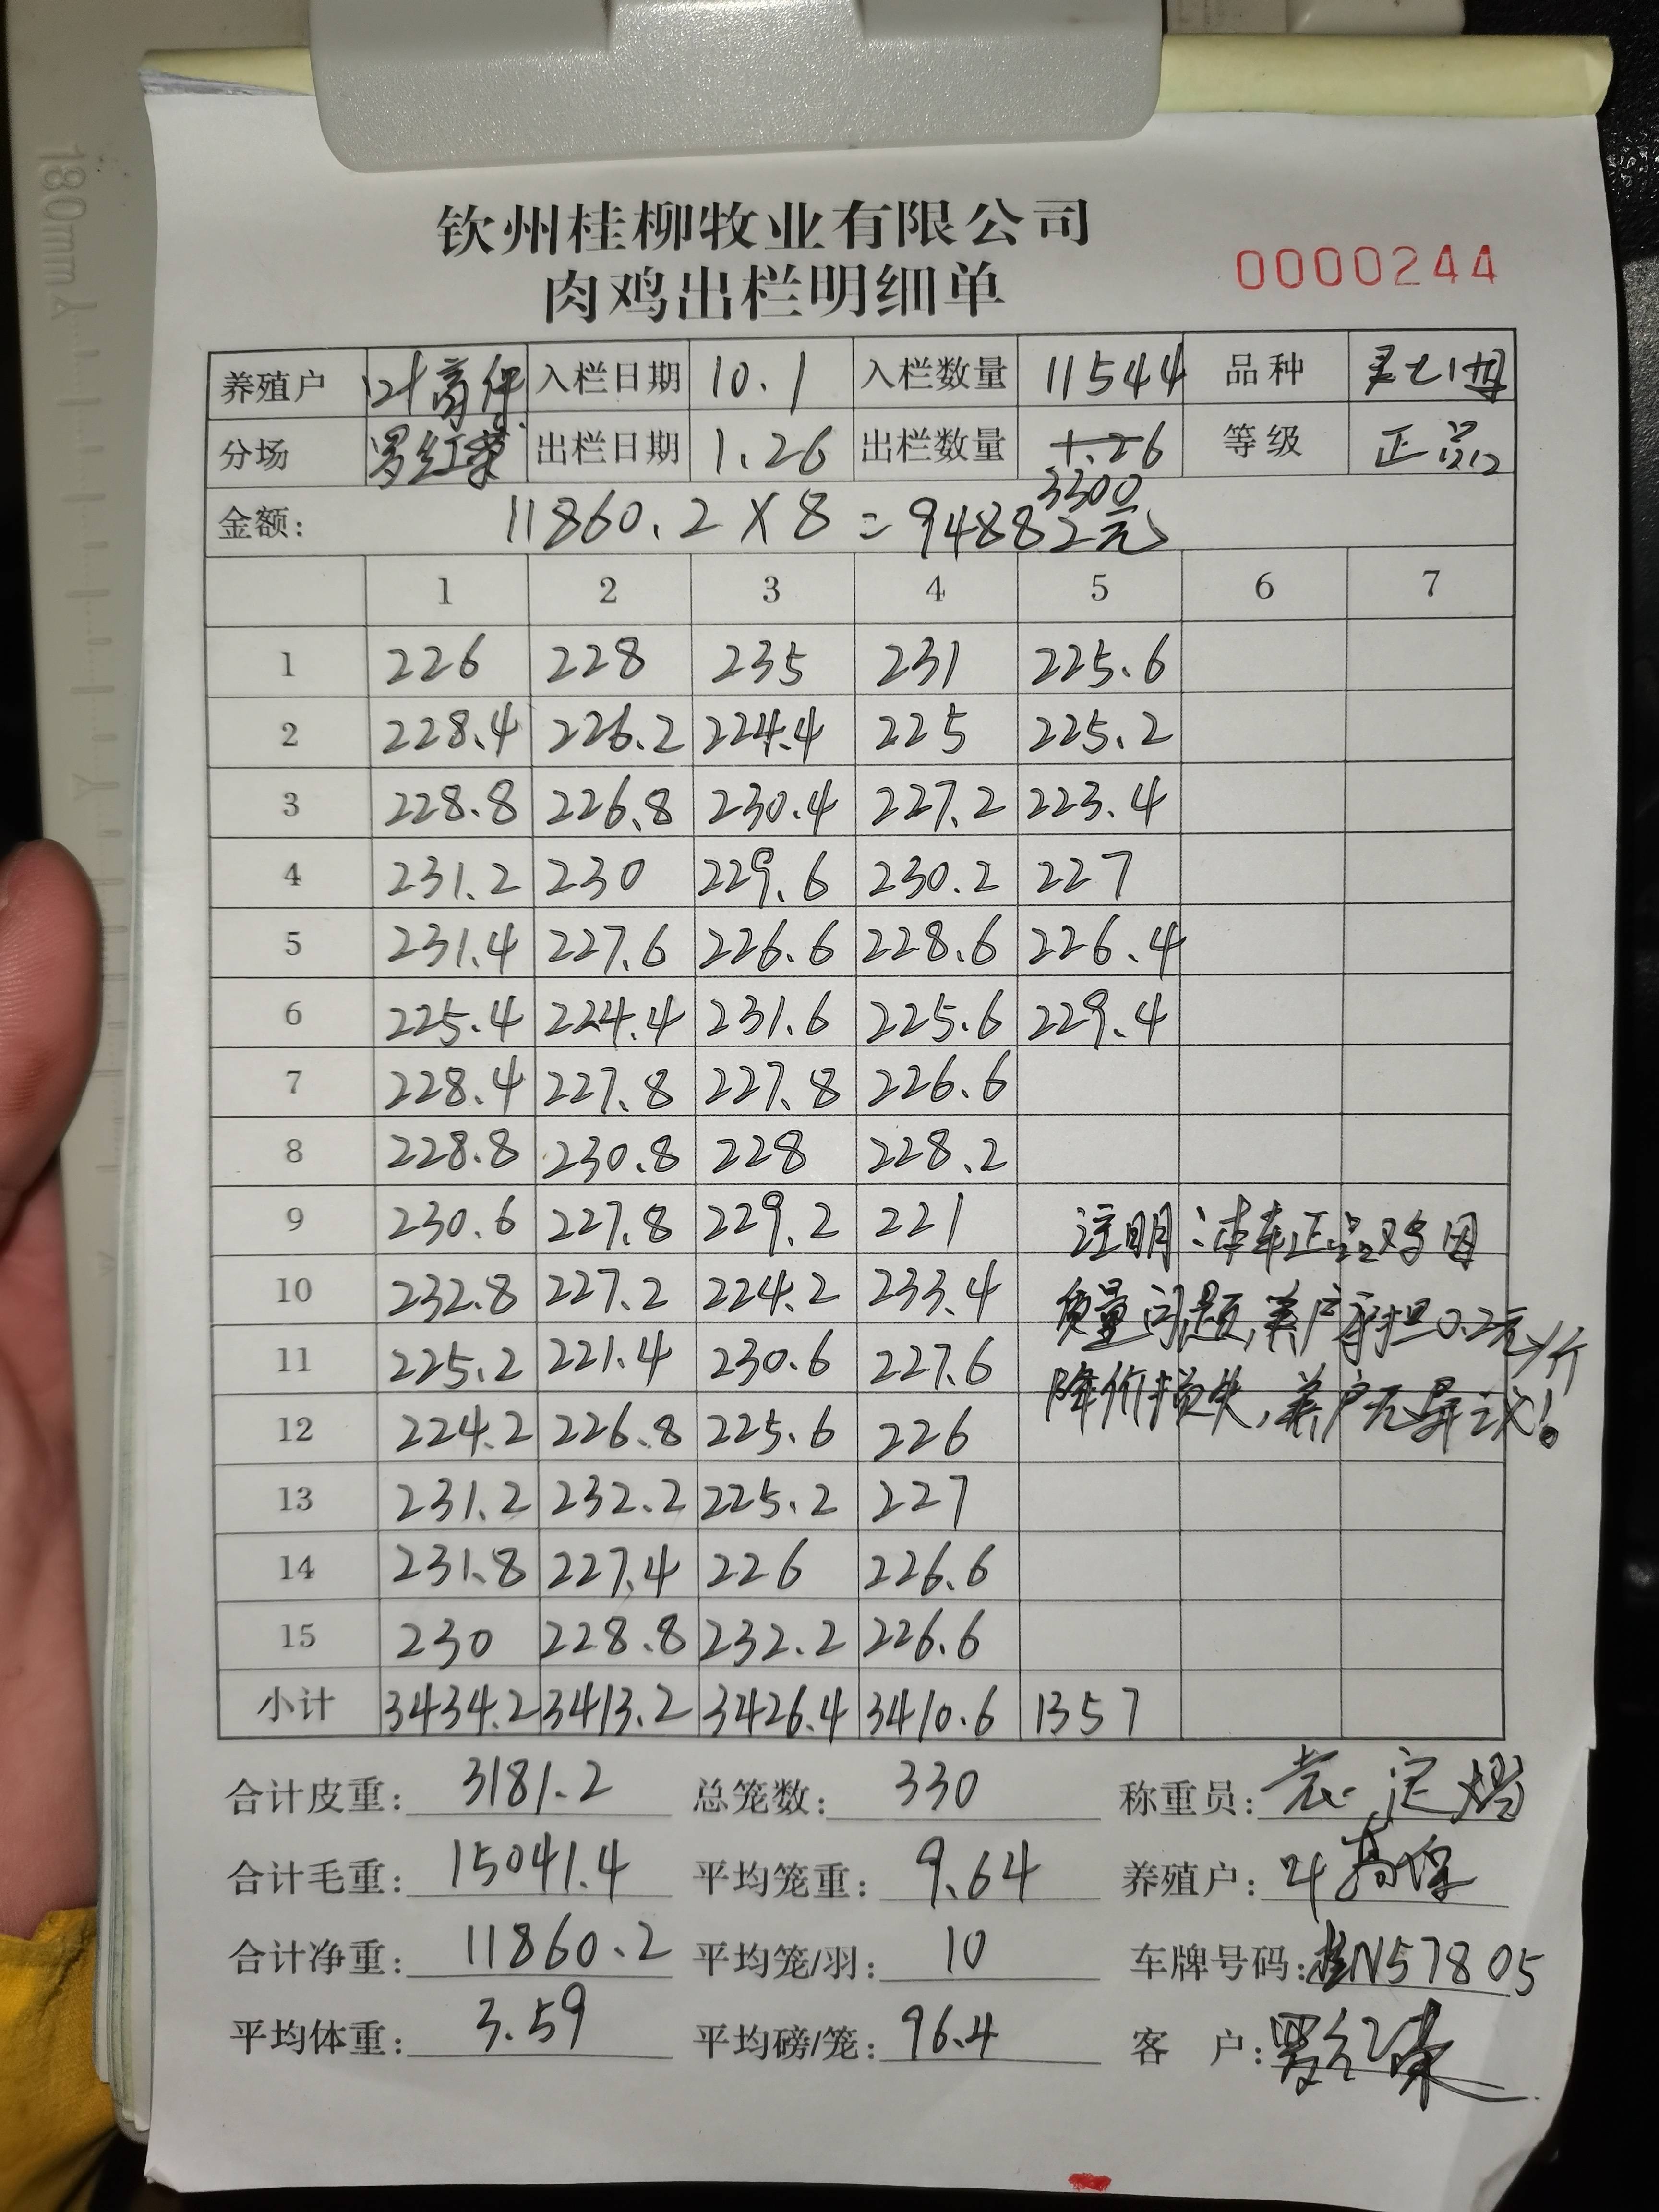 180mm
钦州桂柳牧业有限公司
肉鸡出栏明细单
0000244
养殖户 叶高保 入栏日期 10.1 入栏数量 11544 品种
分场 罗红東 出栏日期 1.26 出栏数量 1.26 等级 正品
3300
金额: 11860.2×8=94882元
1 2 3 4 5 6 7
1 226 228 235 231 225.6
2 228.4 226.2 224.4 225 225.2
3 228.8 226.8 230.4 227.2 223.4
4 231.2 230 229.6 230.2 227
5 231.4 227.6 226.6 228.6 226.4
6 225.4 224.4 231.6 225.6 229.4
7 228.4 227.8 227.8 226.6
8 228.8 230.8 228 228.2
9 230.6 227.8 229.2 221 注明:本车正品鸡因
10 232.8 227.2 224.2 233.4 质量问题,养户承担0.2元/斤
11 225.2 221.4 230.6 227.6 降价损失,养户无异议!
12 224.2 226.8 225.6 226
13 231.2 232.2 225.2 227
14 231.8 227.4 226 226.6
15 230 228.8 232.2 226.6
小计 3434.2 3413.2 3426.4 3410.6 1357
合计皮重: 3181.2 总笼数: 330 称重员:
合计毛重: 15041.4 平均笼重: 9.64 养殖户: 叶高保
合计净重: 11860.2 平均笼/羽: 10 车牌号码: 桂N57805
平均体重: 3.59 平均磅/笼: 96.4 客户: 罗红東